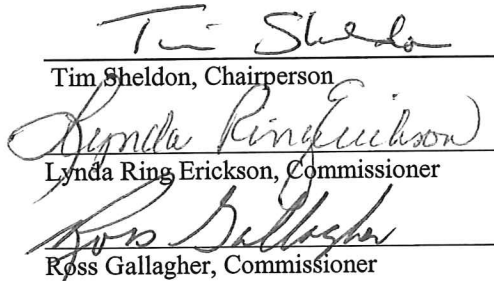 Tim Sheldon
Tim Sheldon, Chairperson
Lynda Ring Erickson
Lynda Ring Erickson, Commissioner
Ross Gallagher
Ross Gallagher, Commissioner